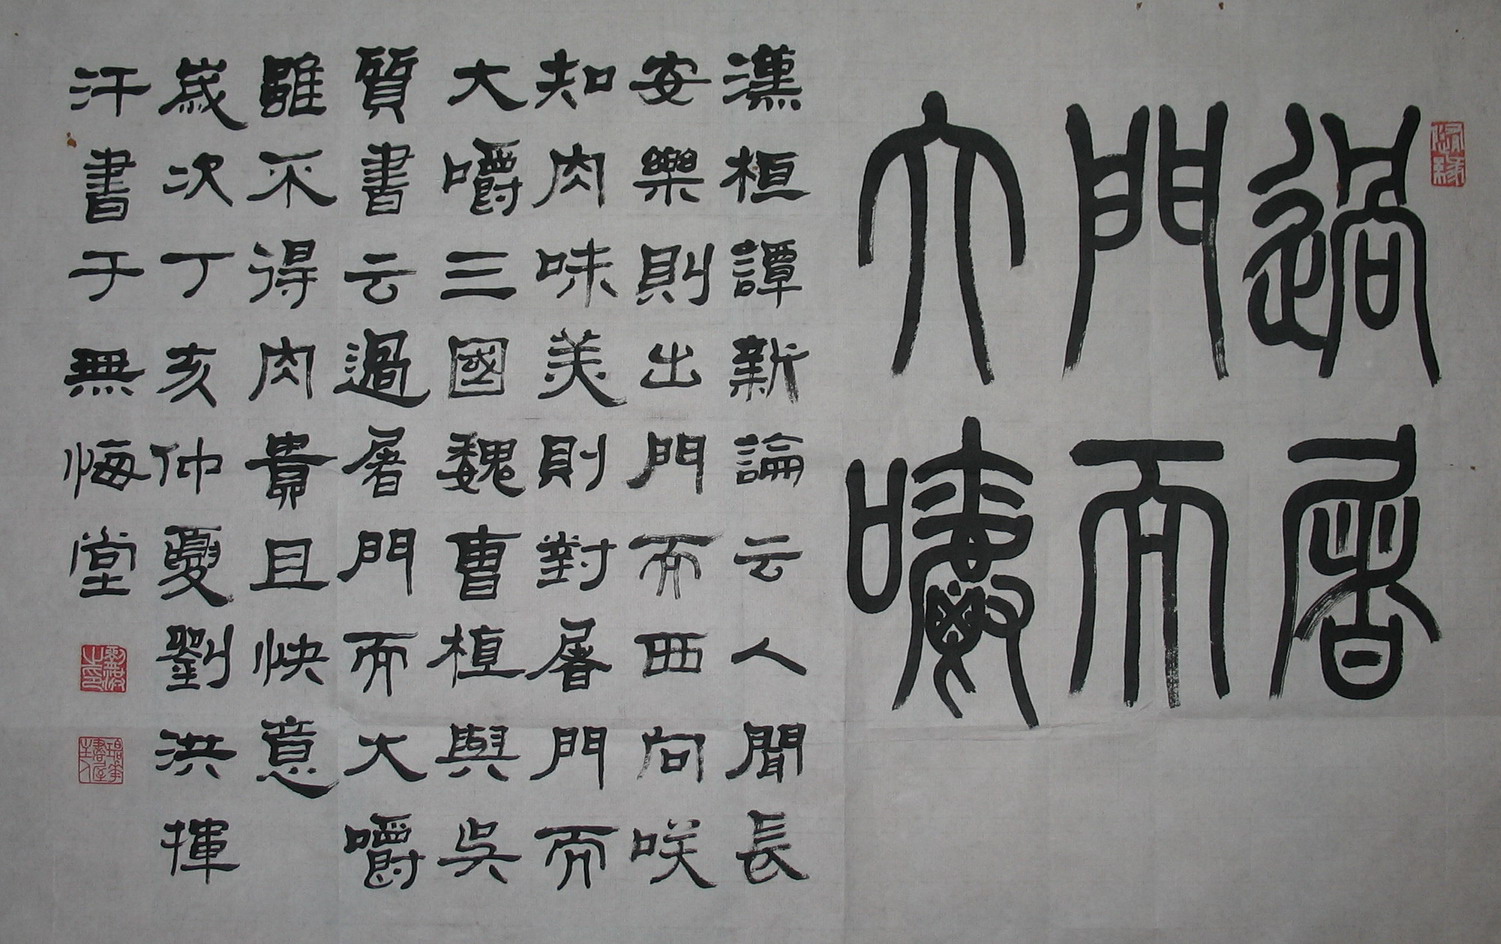 過屠
門而
大嚼
漢桓譚新論云人聞長
安樂則出門而西向咲
知肉味美則對屠門而
大嚼三國魏曹植與吳
質書云過屠門而大嚼
雖不得肉貴且快意
歲次丁亥仲夏劉洪揮
汗書于無悔堂